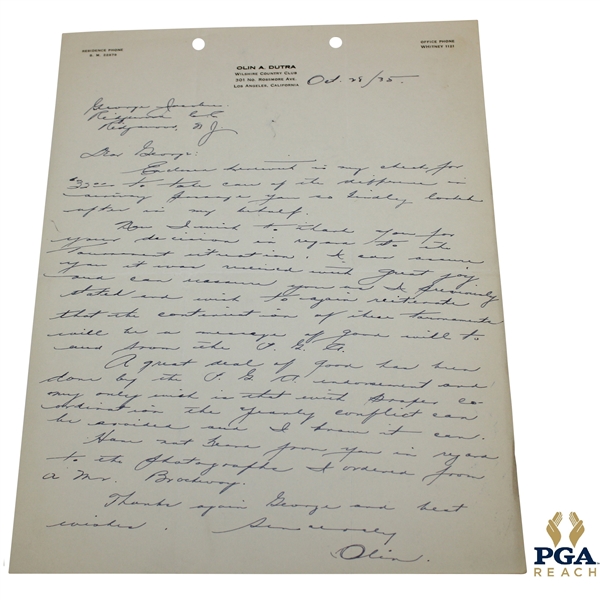 RESIDENCE PHONE
OFFICE PHONE
WHITNEY 1121
OLIN A. DUTRA
WILSHIRE COUNTRY CLUB
301 NO. ROSSMORE AVE.
LOS ANGELES, CALIFORNIA
Oct. 29/35.
George
Ridgewood C.C.
Ridgewood, N J
Dear George:
Enclosed herewith is my check for
to take care of the difference in
you so kindly looked
after in my behalf.
I wish to thank you for
your decision in regard to the
tournament situation. I can assure
you it was received with great joy
and can reassure you as I previously
stated and wish to again reiterate
that the continuation of these tournaments
will be a message of good will to
and from the P. G. A.
A great deal of good has been
done by the P. G. A. endorsement and
my only wish is that with proper co-
ordination the yearly conflict can
be avoided and I know it can.
Have not heard from you in regard
to the photographs I ordered from
a Mr. Brockway.
Thanks again George and best
wishes. Sincerely
Olin.
PGA
REACH